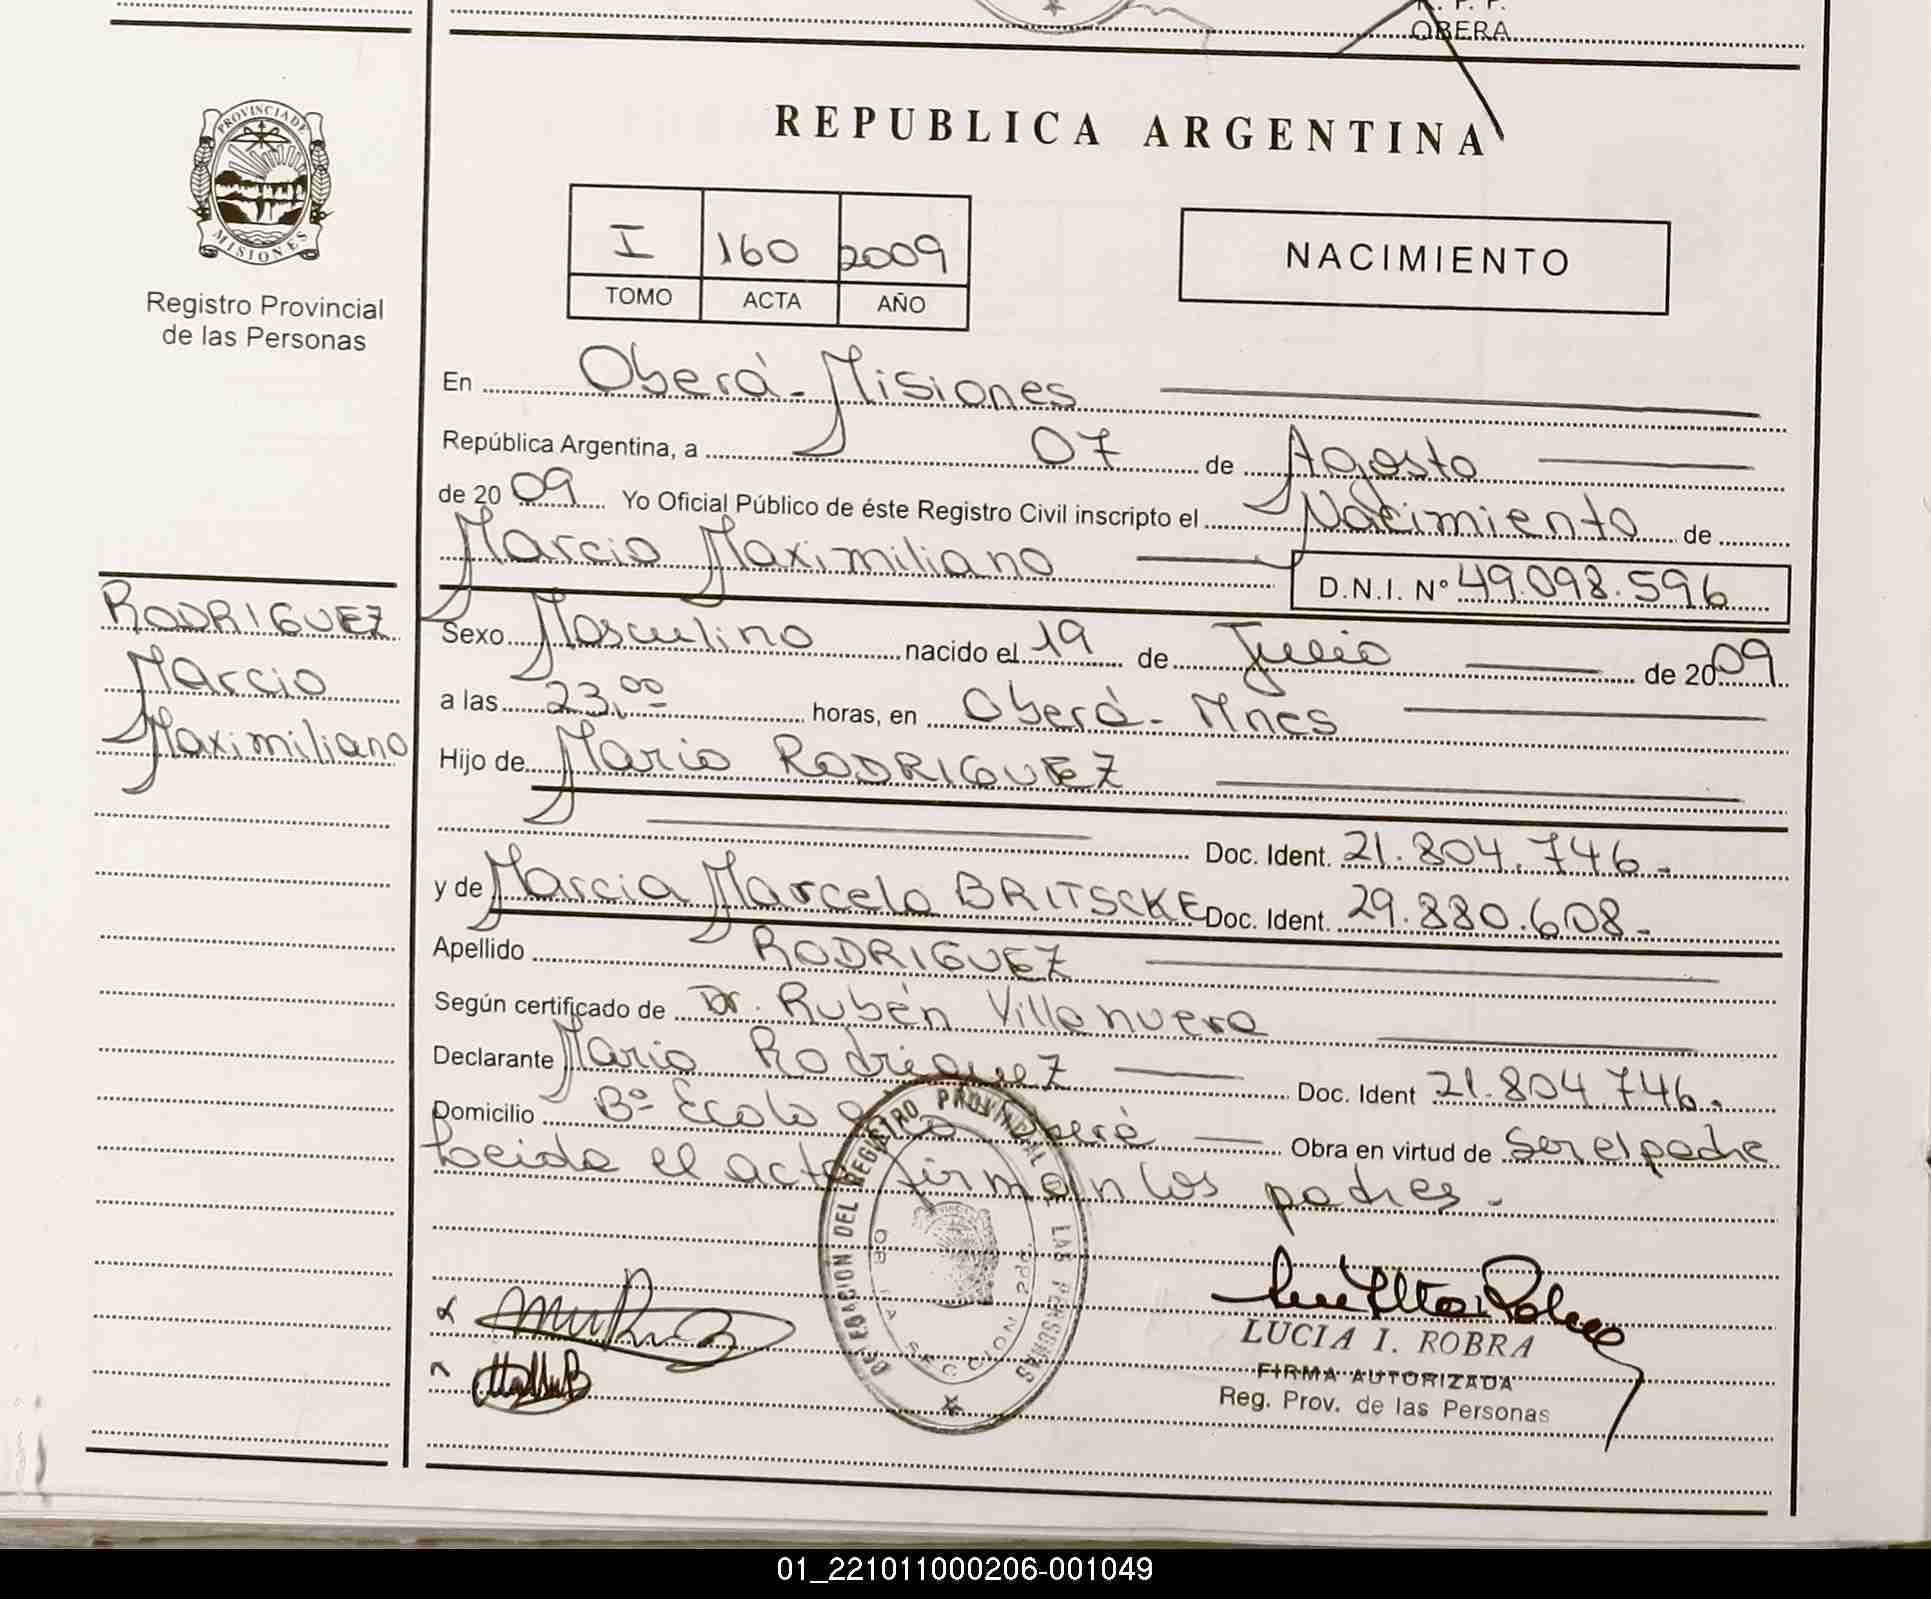 R. P. P.
OBERA
REPUBLICA ARGENTINA
PROVINCIA DE
MISIONES
Registro Provincial
de las Personas
I 160 2009
TOMO ACTA AÑO
NACIMIENTO
En Oberá - Misiones
República Argentina, a 07 de Agosto
de 2009 Yo Oficial Público de éste Registro Civil inscripto el Nacimiento de
Marcio Maximiliano
D.N.I. Nº 49.098.596
RODRIGUEZ
Marcio
Maximiliano
Sexo Masculino nacido el 19 de Julio de 2009
a las 23,00 horas, en Oberá - Mnes
Hijo de Mario RODRIGUEZ
Doc. Ident. 21.804.746.
y de Marcia Marcela BRITSCKE Doc. Ident. 29.880.608.
Apellido RODRIGUEZ
Según certificado de Dr. Rubén Villanueva
Declarante Mario Rodriguez Doc. Ident 21.804.746.
Domicilio Bº Oberá Obra en virtud de Ser el padre
Leida el acta firman los padres.
DELEGACION DEL REGISTRO PROVINCIAL DE LAS PERSONAS
DE LA SECCION
LUCIA I. ROBRA
FIRMA AUTORIZADA
Reg. Prov. de las Personas
01_221011000206-001049